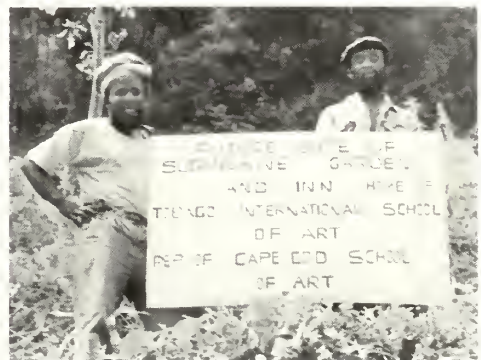 FUTURE SITE OF
SUBMARINE GARDEN
AND INN HOME OF
TOBAGO INTERNATIONAL SCHOOL
OF ART
REP OF CAPE COD SCHOOL
OF ART